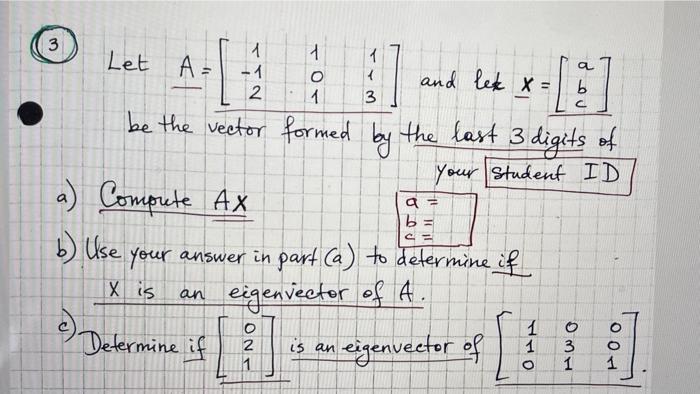 3
Let A = [ 1 1 1 and let x = [ a
-1 0 1 b
2 1 3 ] c ]
be the vector formed by the last 3 digits of
your Student ID
a) Compute AX
a =
b =
c =
b) Use your answer in part (a) to determine if
X is an eigenvector of A.
c) Determine if [ 0 is an eigenvector of [ 1 0 0
2 1 3 0
1 ] 0 1 1 ].